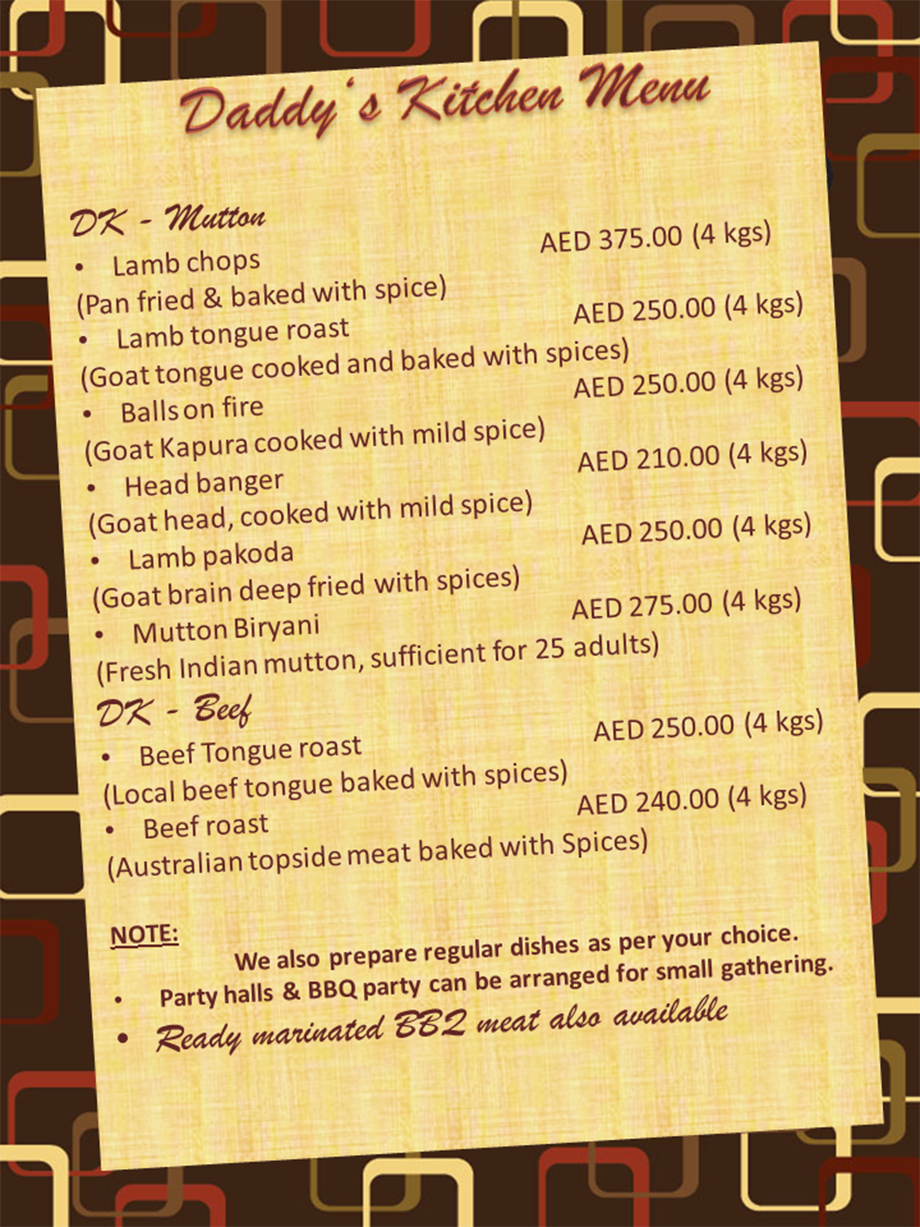 Daddy's Kitchen Menu
DK - Mutton
• Lamb chops AED 375.00 (4 kgs)
(Pan fried & baked with spice)
• Lamb tongue roast AED 250.00 (4 kgs)
(Goat tongue cooked and baked with spices)
• Balls on fire AED 250.00 (4 kgs)
(Goat Kapura cooked with mild spice)
• Head banger AED 210.00 (4 kgs)
(Goat head, cooked with mild spice)
• Lamb pakoda AED 250.00 (4 kgs)
(Goat brain deep fried with spices)
• Mutton Biryani AED 275.00 (4 kgs)
(Fresh Indian mutton, sufficient for 25 adults)
DK - Beef
• Beef Tongue roast AED 250.00 (4 kgs)
(Local beef tongue baked with spices)
• Beef roast AED 240.00 (4 kgs)
(Australian topside meat baked with Spices)
NOTE:
We also prepare regular dishes as per your choice.
• Party halls & BBQ party can be arranged for small gathering.
• Ready marinated BBQ meat also available